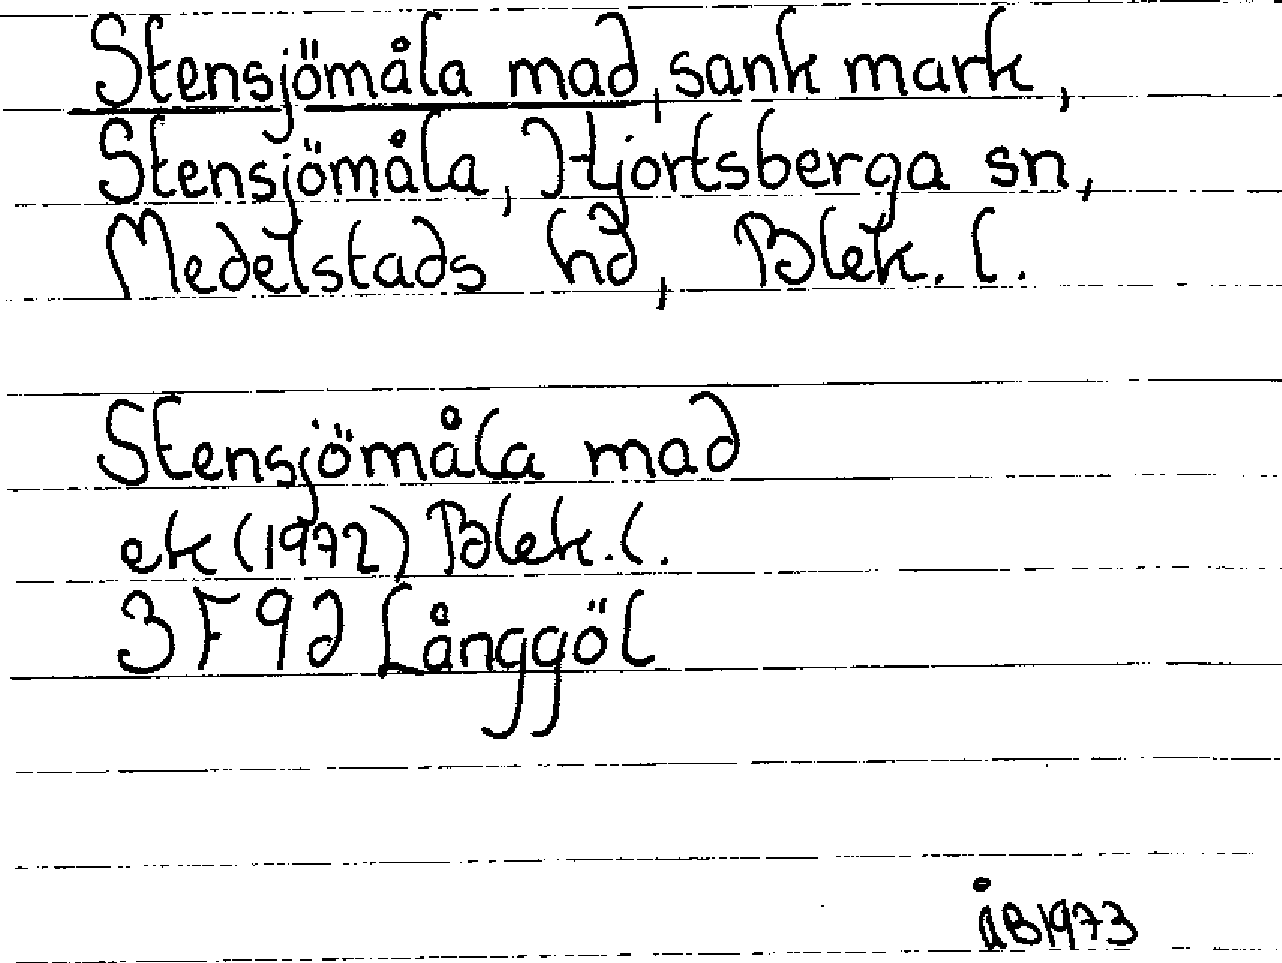 Stensjömåla mad, sank mark,
Stensjömåla, Hjortsberga sn,
Medelstads hd, Blek. l.
Stensjömåla mad
ek (1972) Blek. l.
3F9d Långgöl
ÅB1973